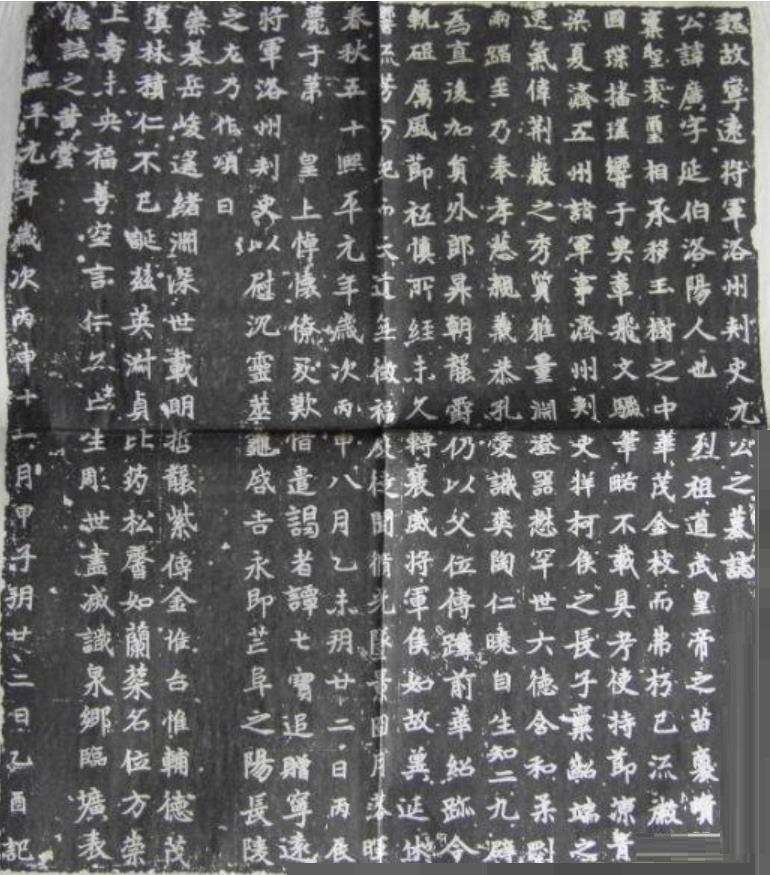 魏故寧遠將軍洛州刾史元公之墓誌
公諱廣字延伯洛陽人也烈祖道武皇帝之苗裔
聖裹璽相承移玉樹之中華茂金枝而弗朽已流
國璟播瑾響于典章飛文騷筆略不載具考使持節涼青
梁夏濟五州諸軍事濟州刾史牂柯侯之長子禀齠端之
逸氣偉荆巖之秀質雅量淵澄器懋罕世六德含和柔剛
兩蹈至乃奉孝慈親義恭孔愛識奕陶仁曉自生知二九辟
為直後加負外郎昇朝襲爵仍以父位傳踵前華紹跡今
軌磓厲風節祗慎所經未久轉襄威將軍侯如故兾延休
響流芳万而天道無徵福閒脩光墜景圓月落暉
春秋五十熙平元年歲次丙申八月乙未朔廿二日丙辰
薨于第皇上悼懷僚友歎惜遣謁者譚七寶追贈寧遠
將軍洛州刾史以慰沉靈莁龜啓吉永即芒阜之陽長陵
之左乃作頌曰
崇基岳峻遥緒淵深世載明哲襲紫傳金惟台惟輔德茂
瓊林積仁不已誕兹英淋貞比葯松馨如蘭蘂名位方崇
上壽未央福善空言仁亡生彫世盡减識泉鄉臨壙表
德誌之黄堂
熙平元年歲次丙申十一月甲子朔廿二日乙酉記